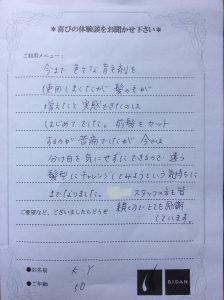 ＊喜びの体験談をお聞かせ下さい＊
ご利用メニュー：
今まで 色々な 育毛剤を
使用しましたが 髪の毛が
増えたと 実感できたのは
はじめてでした。 前髪をセット
するのが 苦痛でしたが 今では
分け目を 気にせずにできるので 違う
髪型にチャレンジしてみようという気持ちに
までなりました。 スタッフの方も皆
親切でとても感謝
しています。
ご要望など、ございましたらどうぞ
●お名前 K.Y
●ご年齢 50
BIDAN